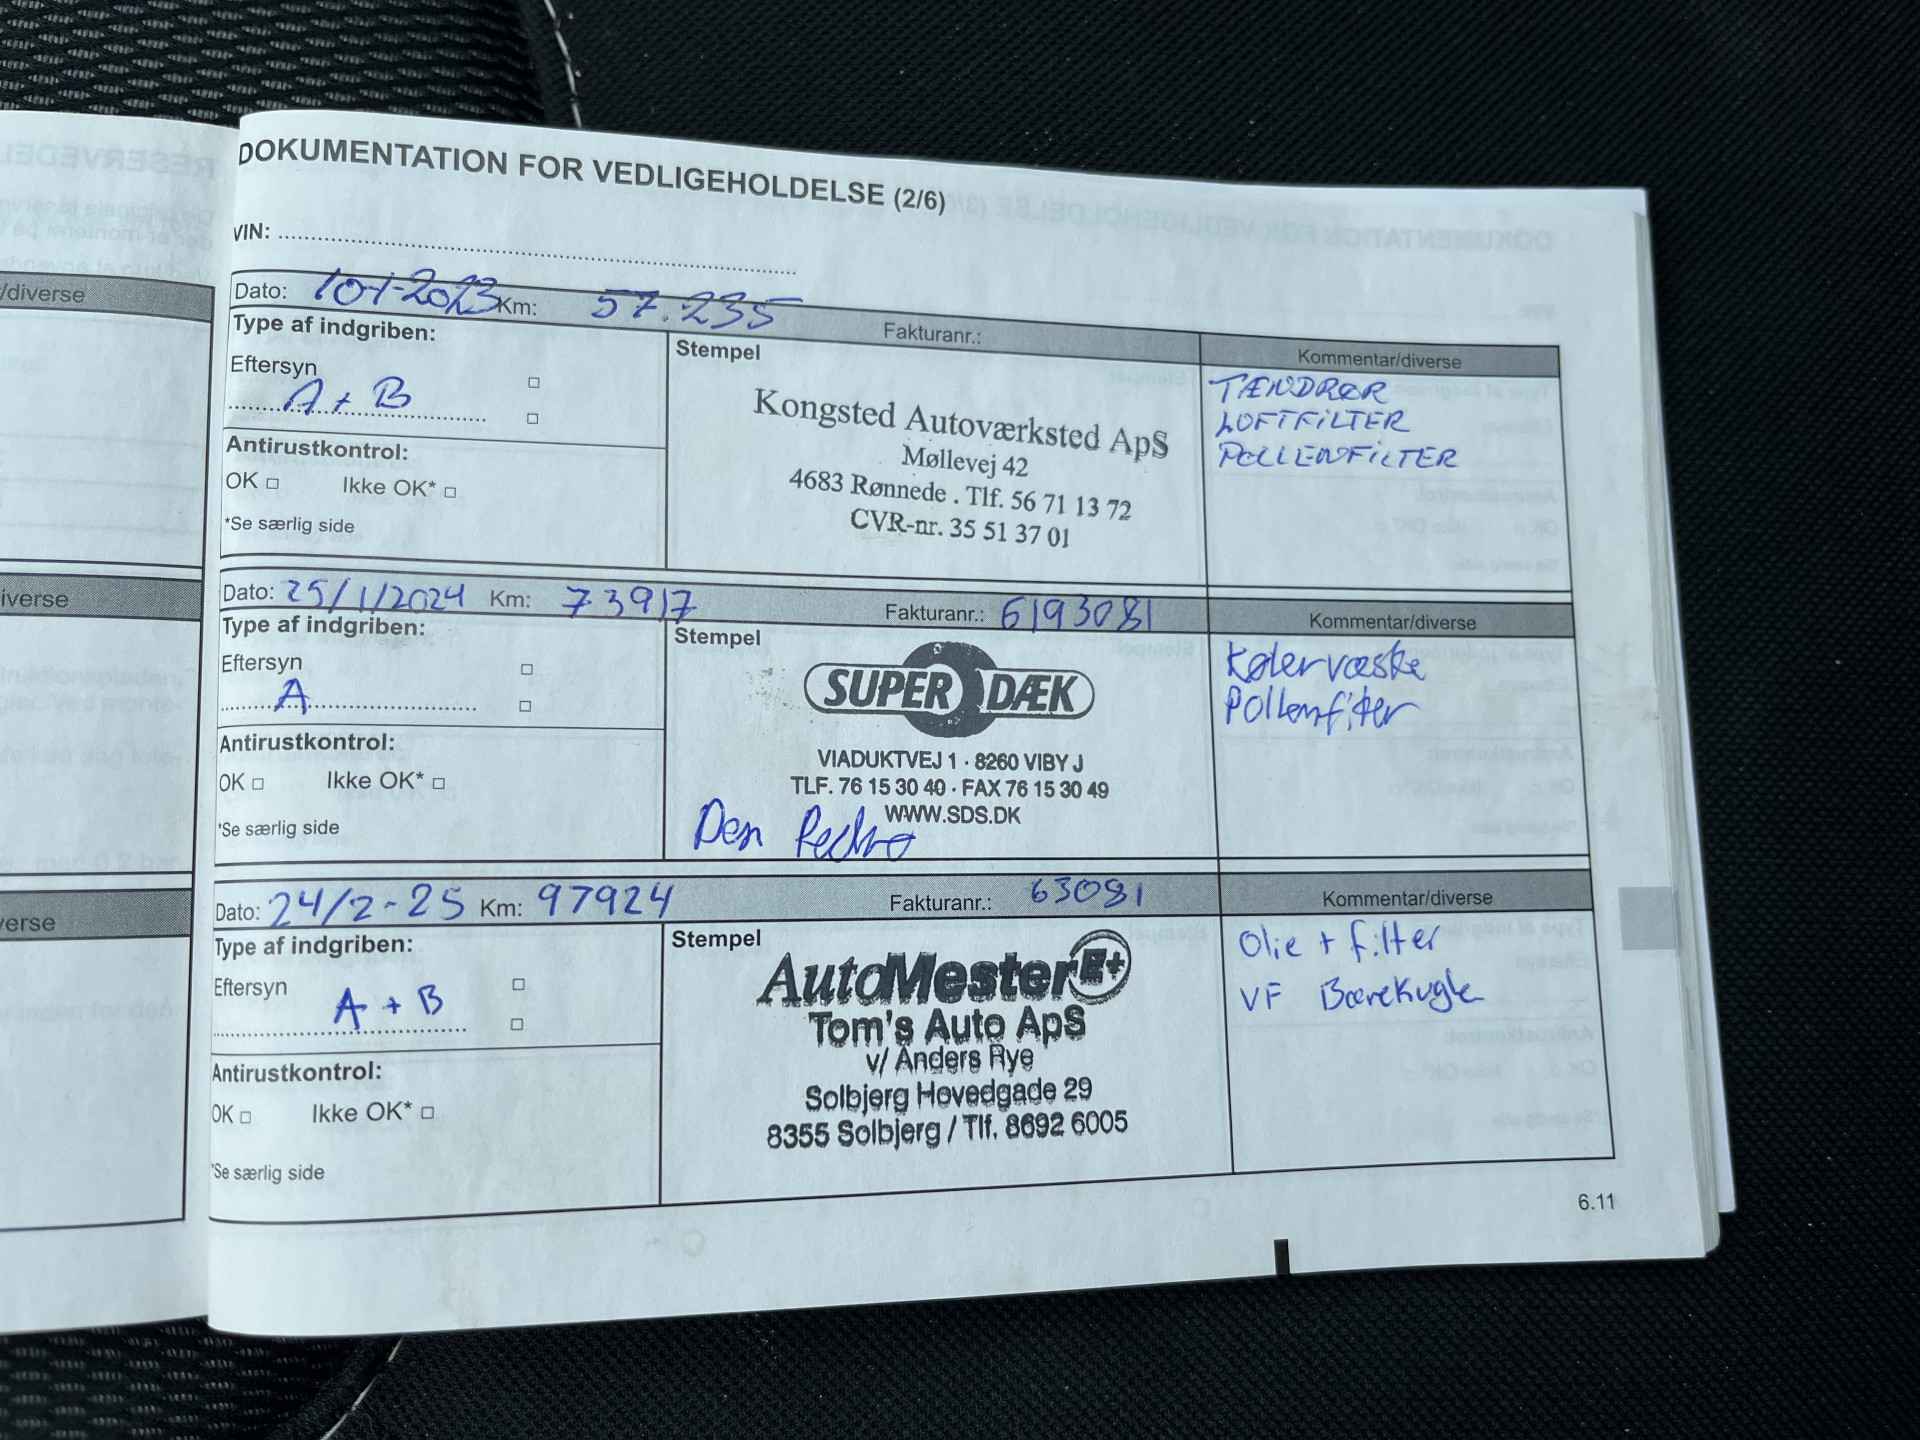 DOKUMENTATION FOR VEDLIGEHOLDELSE (2/6)
VIN:
Dato: 10-1-2023 Km: 57.235 Fakturanr.:
Kommentar/diverse
Type af indgriben:
Eftersyn
A + B
Antirustkontrol:
OK Ikke OK*
*Se særlig side
Stempel
Kongsted Autoværksted ApS
Møllevej 42
4683 Rønnede . Tlf. 56 71 13 72
CVR-nr. 35 51 37 01
TÆNDRØR
LUFTFILTER
POLLENFILTER
Dato: 25/1/2024 Km: 73917 Fakturanr.: 6193081
Kommentar/diverse
Type af indgriben:
Eftersyn
A
Antirustkontrol:
OK Ikke OK*
*Se særlig side
Stempel
SUPER DÆK
VIADUKTVEJ 1 · 8260 VIBY J
TLF. 76 15 30 40 · FAX 76 15 30 49
WWW.SDS.DK
Kølervæske
Pollenfilter
Dato: 24/2-25 Km: 97924 Fakturanr.: 63081
Kommentar/diverse
Type af indgriben:
Eftersyn
A + B
Antirustkontrol:
OK Ikke OK*
*Se særlig side
Stempel
AutoMester E+
Tom's Auto ApS
v/ Anders Rye
Solbjerg Hovedgade 29
8355 Solbjerg / Tlf. 8692 6005
Olie + filter
VF Bærekugle
6.11
/diverse
iverse
verse